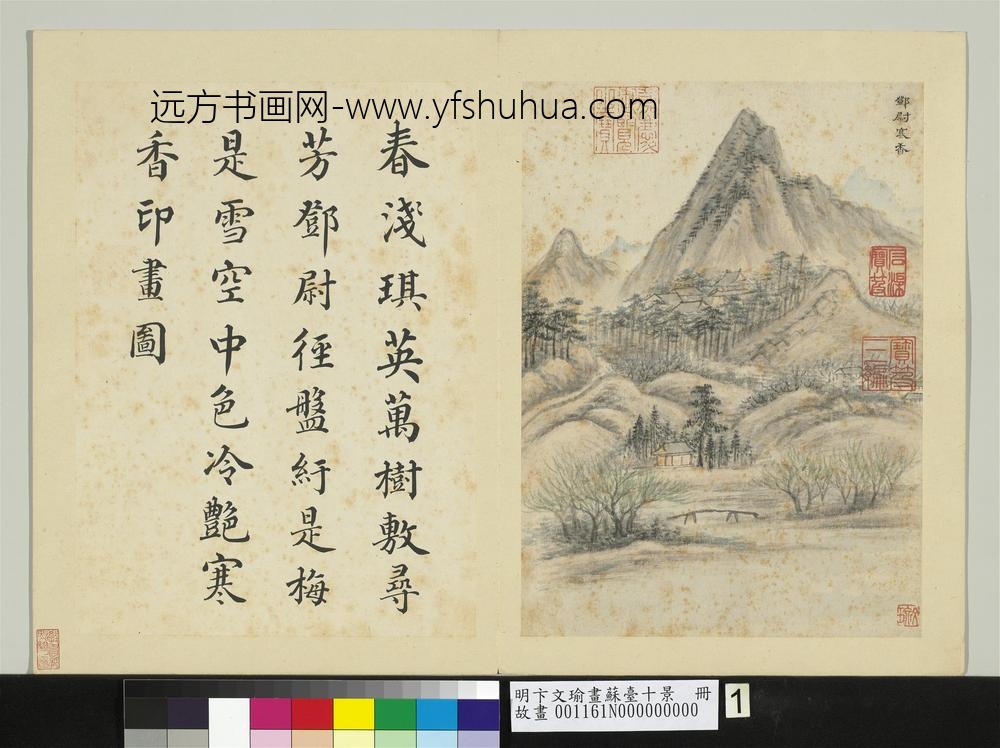 远方书画网-www.yfshuhua.com
春淺琪英萬樹敷尋
芳鄧尉徑盤紆是梅
是雪空中色冷艷寒
香印畫圖
鄧尉寒香
寶笈
三編
明卞文瑜畫蘇臺十景 册
故畫 001161N000000000
1